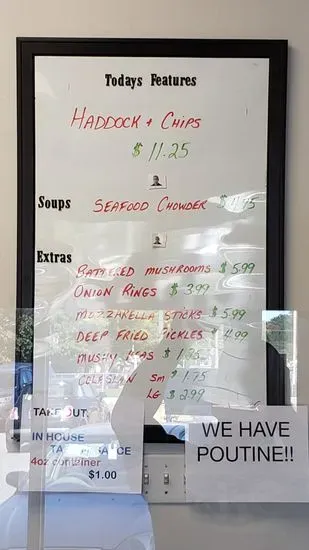 Todays Features
HADDOCK + CHIPS
$ 11.25
Soups SEAFOOD CHOWDER
Extras
BATTERED MUSHROOMS $ 5.99
ONION RINGS $ 3.99
MOZZARELLA STICKS $ 5.99
DEEP FRIED PICKLES $ 4.99
MUSHY PEAS
COLESLAW SM $ 1.75
LG $ 2.99
TAKE OUT,
IN HOUSE
4oz container
$1.00
WE HAVE
POUTINE!!